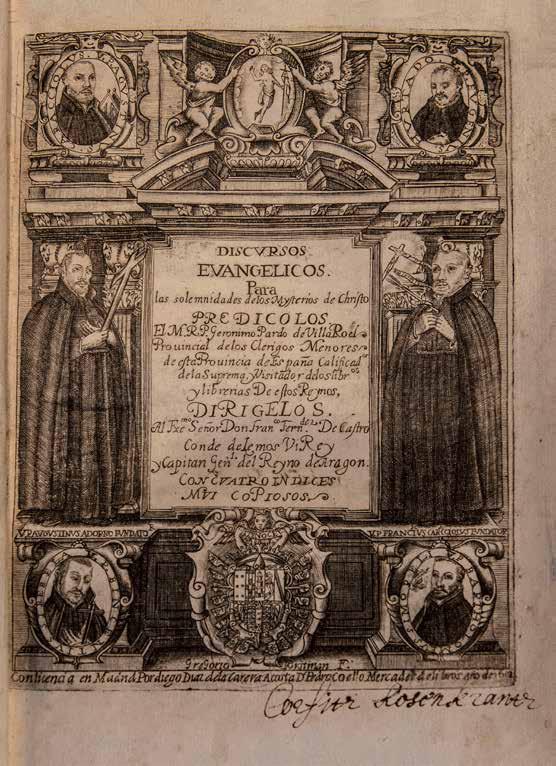 DISCVRSOS
EUANGELICOS.
Para
las solemnidades de los Mysterios de Christo
PREDICOLOS
El M.R.P. Geronimo Pardo de Villa Roel
Provincial de los Clerigos Menores
de esta Provincia de España Calificad.ᵒʳ
de la Suprema y Visitador de los libr.ᵒˢ
y librerias De estos Reynos,
DIRIGELOS.
Al Exc.ᵐᵒ Señor Don Fran.ᶜᵒ Fern.ᵈᵉᶻ De Castro
Conde de lemos Vi Rey
y Capitan Gen.ˡ del Reyno de Aragon.
CON CVATRO INDICES
MVI COPIOSOS.
V.P. AVGVSTINVS ADORNO FVNDATO
V.P. FRANCIVS FVNDATOR
Gregorio Fortman F.
Con licencia en Madrid Por diego Diaz de la Carera Acosta D Pedro Coello Mercader de libros año de
Corfitz Rosenkrantz